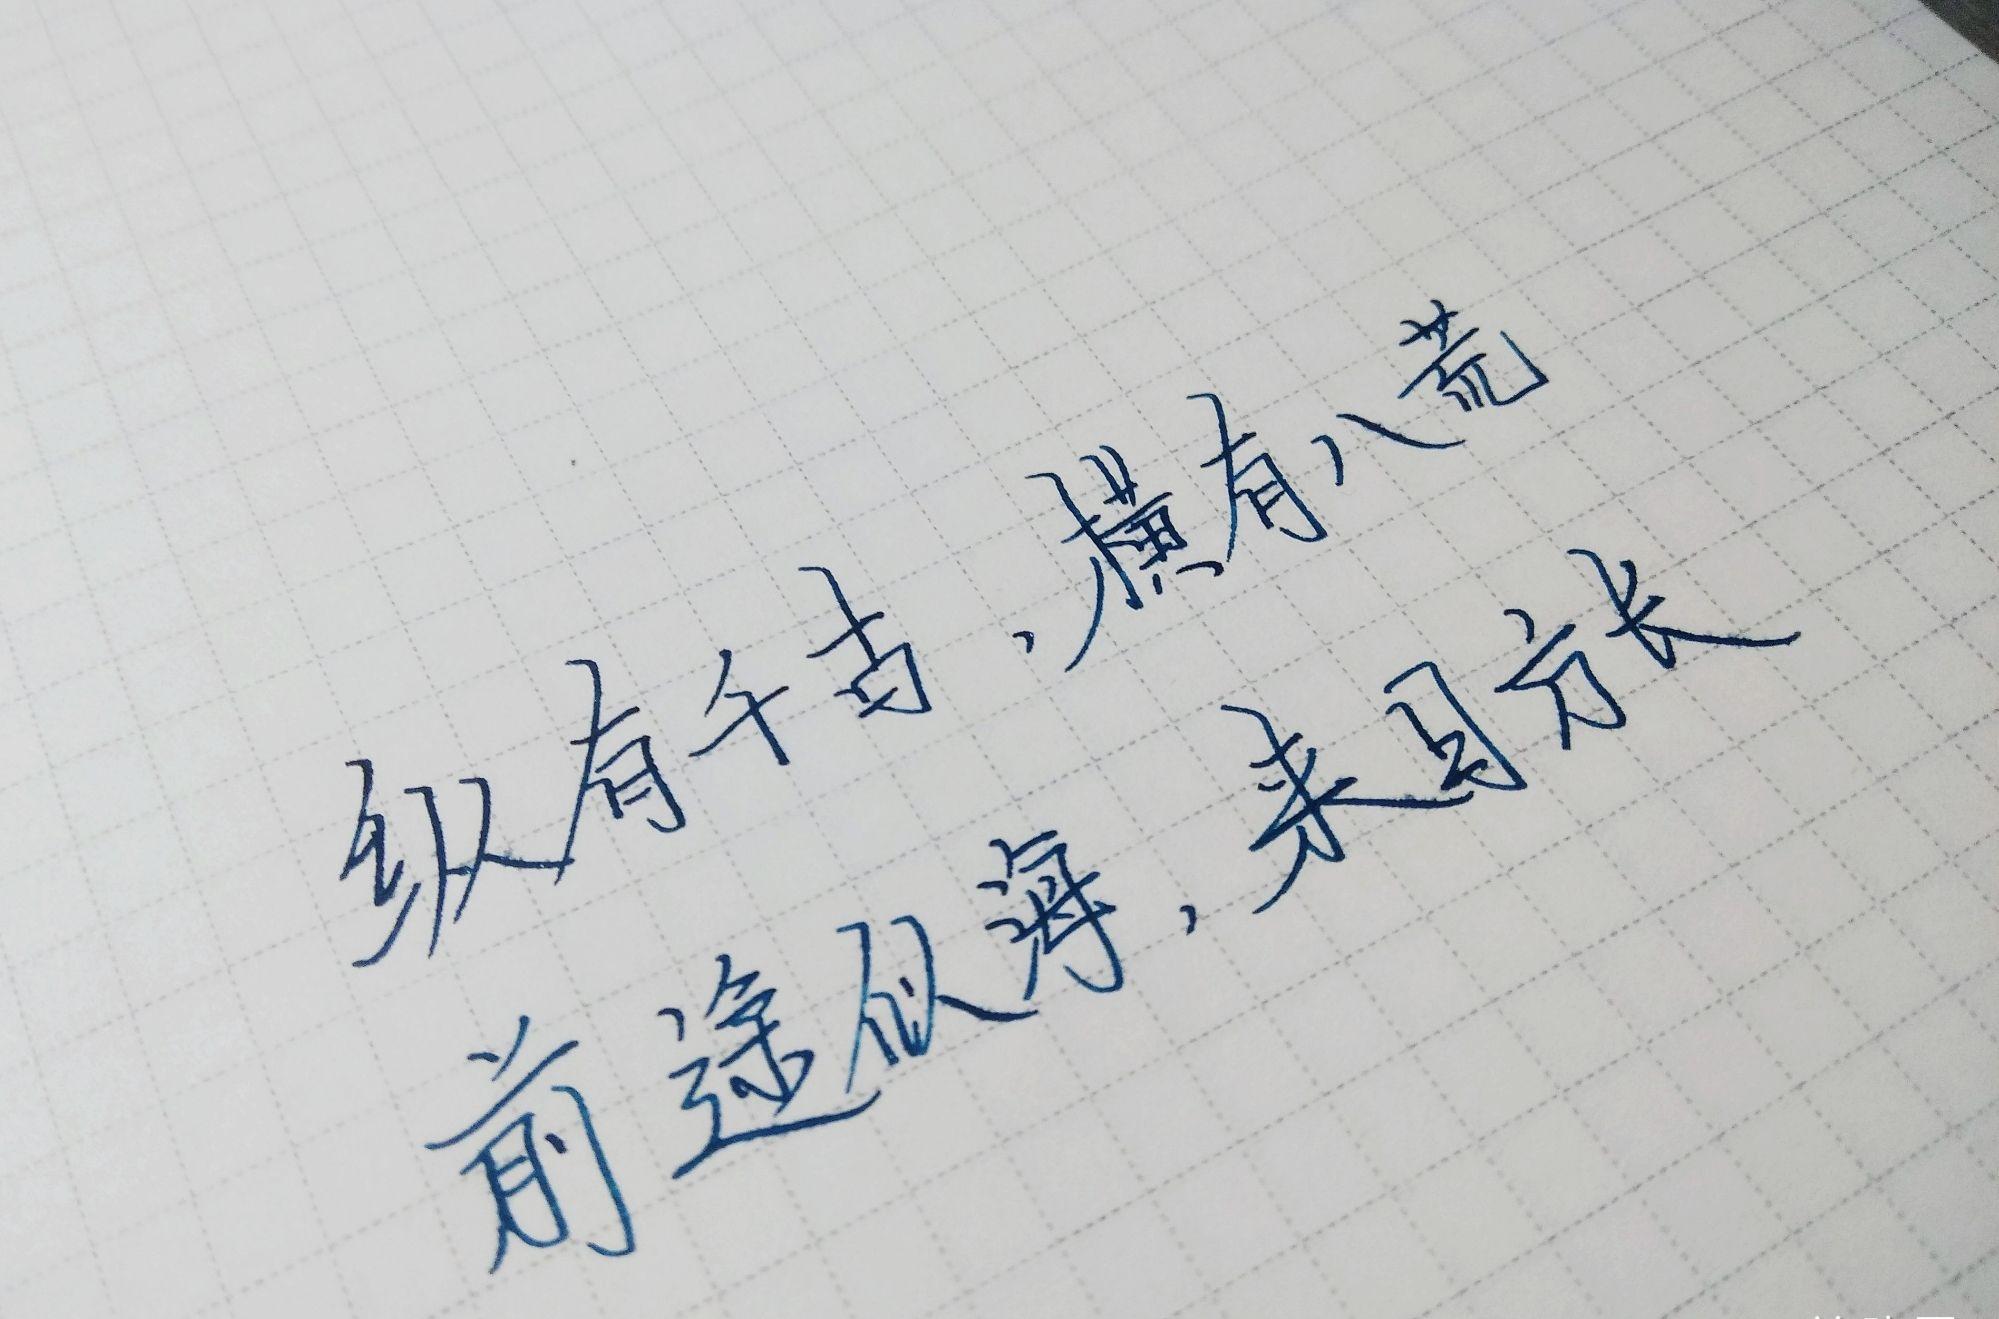 纵有千古，横有八荒
前途似海，来日方长